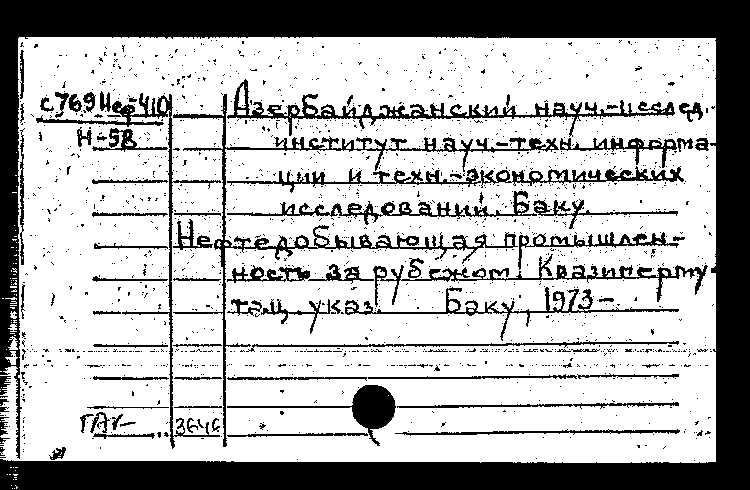 с769Неф-410
Н-58
Азербайджанский науч.-исслед.
институт науч.-техн. информа-
ции и техн.-экономических
исследований. Баку.
Нефтедобывающая промышлен-
ность за рубежом. Квазиперму-
тац. указ. Баку, 1973-
3646